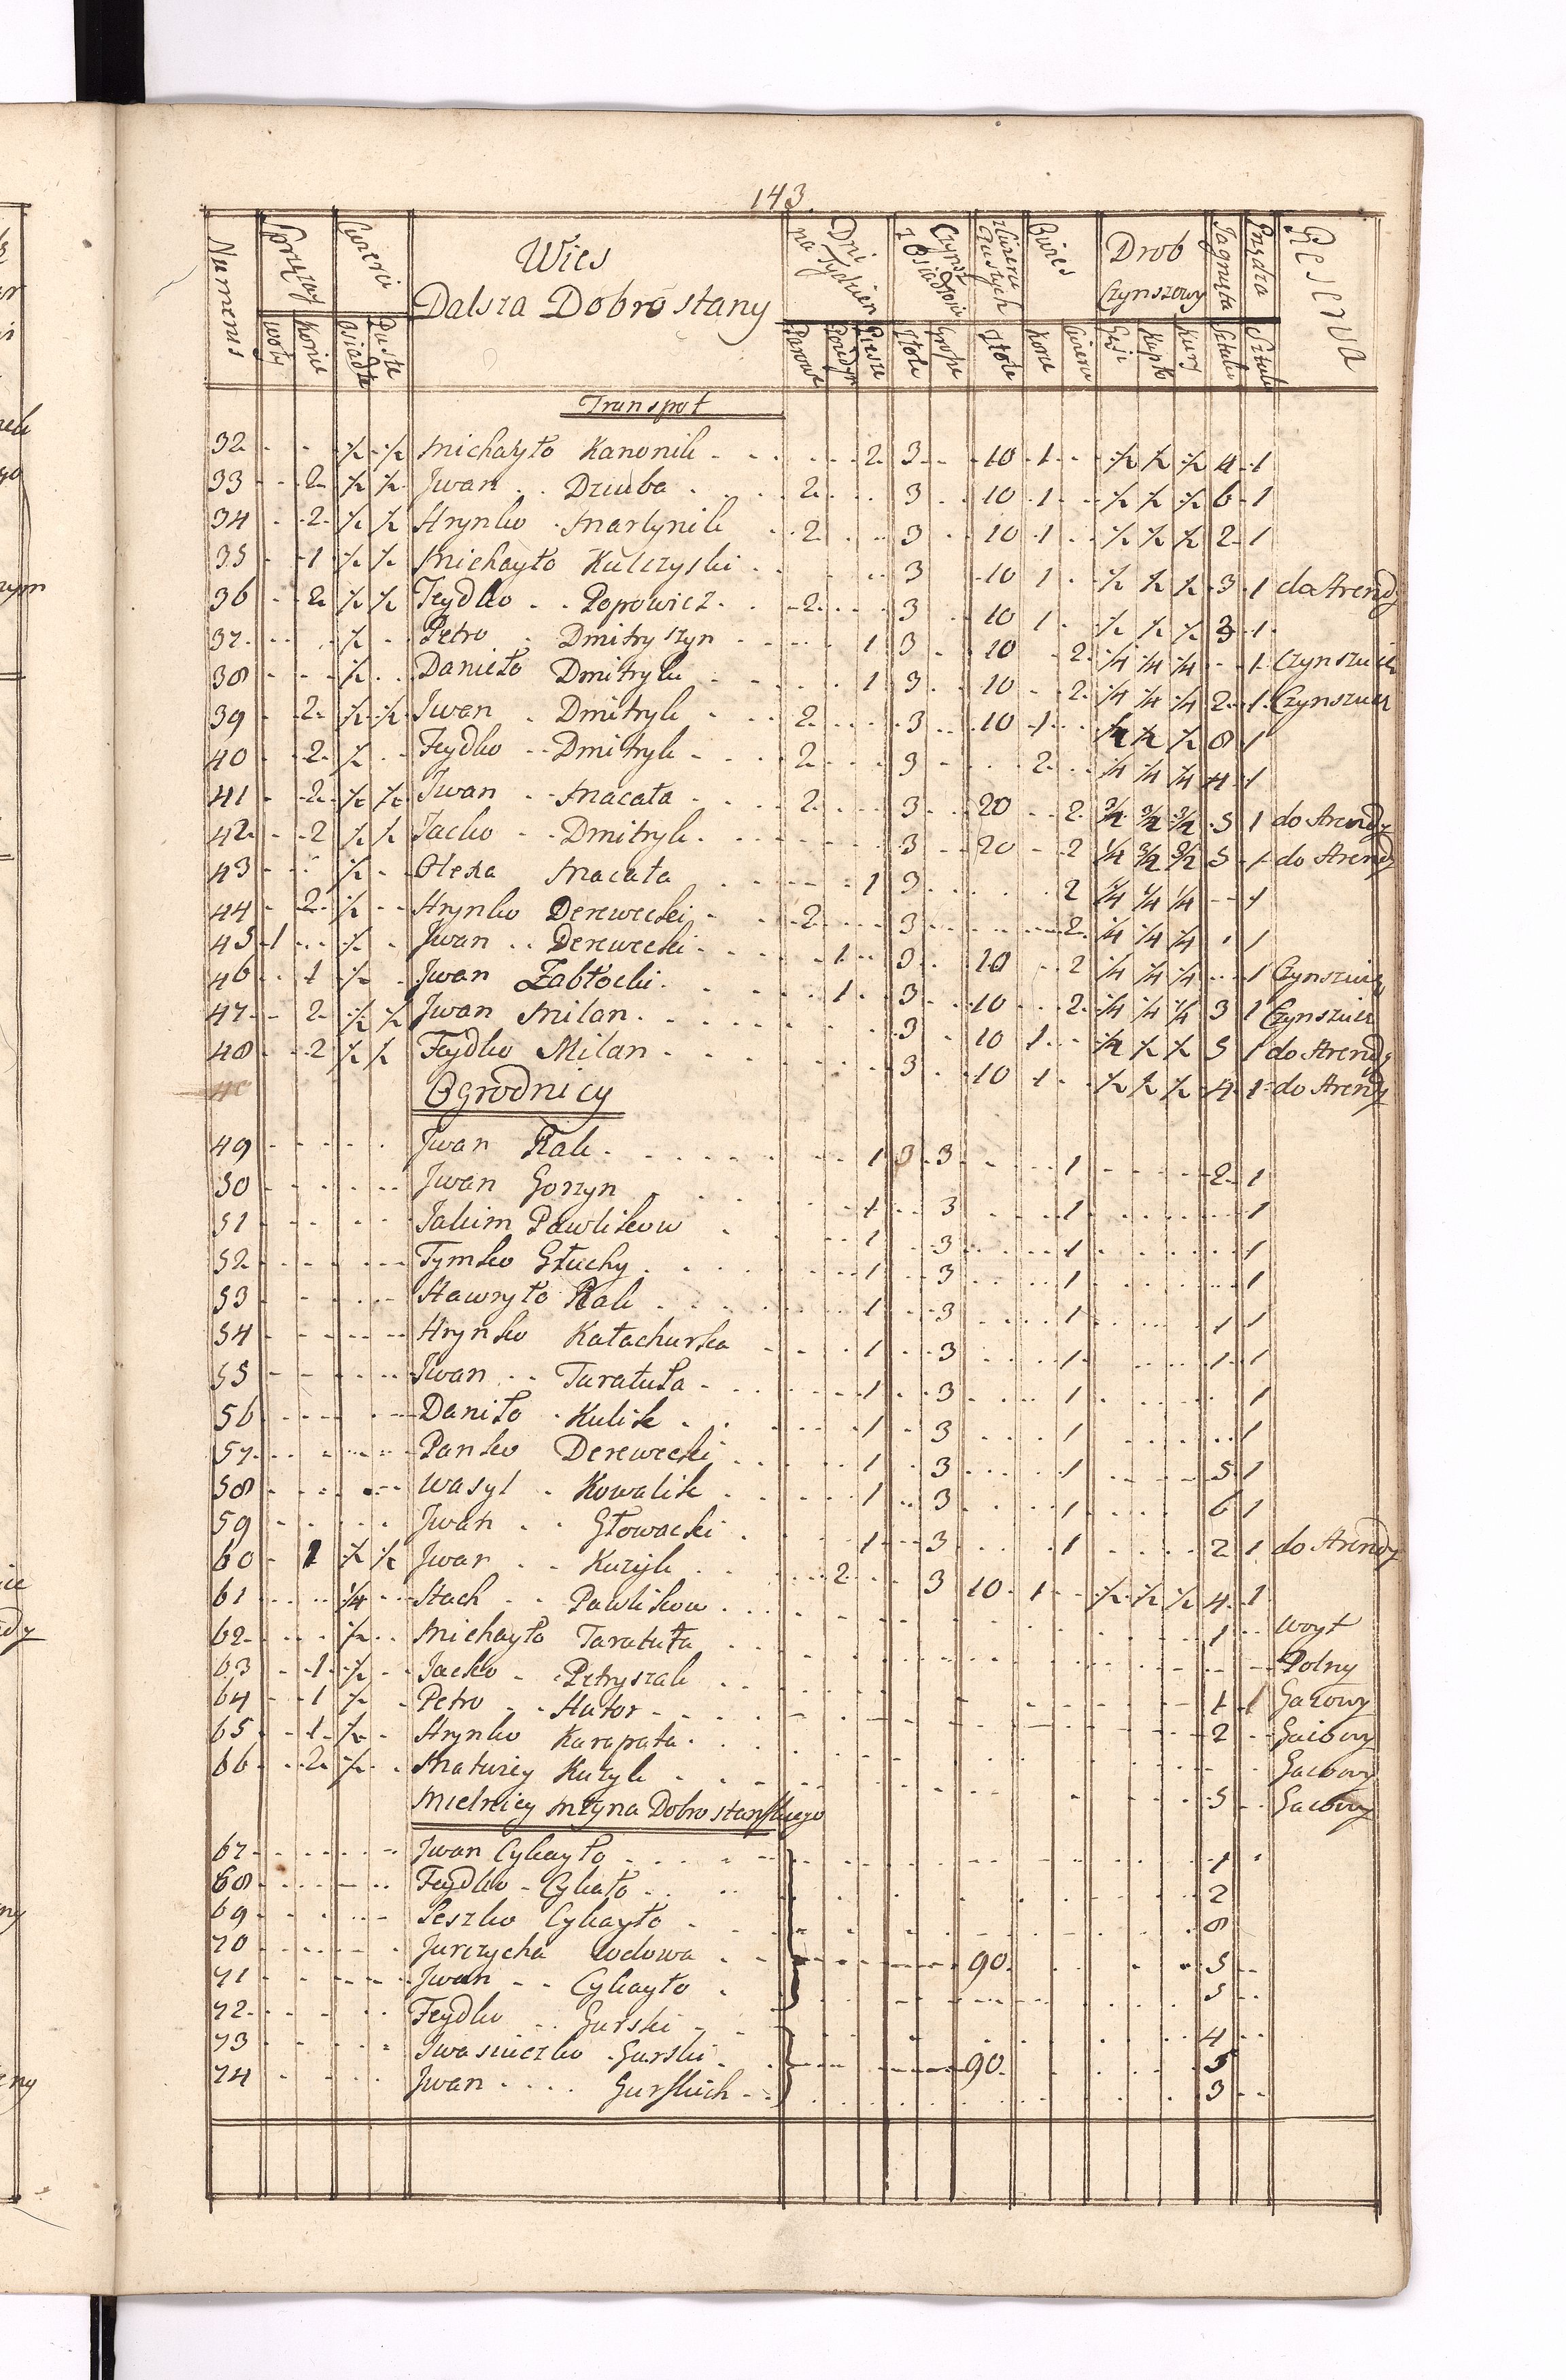 143.
Numerus Sprzężay Cwierci Wies Dni na Tydzien Czynsz z Osiadłości z Cwierci Pustych Owies Drob Jagnięta Przędza Reserva
Dalsza Dobrostany Czynszowy
Woły Konie Osiadłe Puste Parowe Poiedyn Piesze Złote Grosze Złote Korce Cwierci Gęsi Kapło Kury Sztuki Sztuki
Transpot
32 ½ ½ Michayło Kanonik 2 3 10 1 ½ ½ ½ 4 1
33 2 ½ ½ Jwan Dziuba 2 3 10 1 ½ ½ ½ 6 1
34 2 ½ ½ Hrynko Martynik 2 3 10 1 ½ ½ ½ 2 1
35 1 ½ ½ Michayło Kulczyski 3 10 1 ½ ½ ½ 3 1 do Arendy
36 2 ½ ½ Feydko Popowicz 2 3 10 1 ½ ½ ½ 3 1
37 ½ Petro Dmitryszyn 1 3 10 2 ¼ ¼ ¼ 1 Czynszuie
38 ½ Danieło Dmitryk 1 3 10 2 ¼ ¼ ¼ 2 1 Czynszuie
39 2 ½ ½ Jwan Dmitryk 2 3 10 1 ½ ½ ½ 8 1
40 2 ½ Feydko Dmitryk 2 3 2 ¼ ¼ ¼ 4 1
41 2 ½ ½ Jwan Macała 2 3 20 2 3/2 3/2 3/2 5 1 do Arendy
42 2 ½ ½ Jacko Dmitryk 3 20 2 ¼ 3/2 3/2 5 1 do Arendy
43 ½ Olexa Macała 1 3 2 ¼ ¼ ¼ 1
44 2 ½ Hrynko Derewecki 2 3 2 ¼ ¼ ¼ 1
45 1 ½ Jwan Derewecki 1 3 10 2 ¼ ¼ ¼ 1 Czynszuie
46 1 ½ Jwan Zabłocki 1 3 10 2 ¼ ¼ ¼ 3 1 Czynszuie
47 2 ½ ½ Jwan Milan 3 10 1 ½ ½ ½ 5 1 do Arendy
48 2 ½ ½ Feydko Milan 3 10 1 ½ ½ ½ 4 1 do Arendy
Ogrodnicy
49 Jwan Rak 1 3 3 1 2 1
50 Jwan Gorzyn 1 3 1 1
51 Jakim Pawlikow 1 3 1 1
52 Tymko Głuchy 1 3 1 1
53 Hawryło Rak 1 3 1 1 1
54 Hrynko Katachurka 1 3 1 1 1
55 Jwan Taratuła 1 3 1 1
56 Daniło Kulik 1 3 1 1
57 Panko Derewecki 1 3 1 5 1
58 Wasyl Kowalik 1 3 1 6 1
59 Jwan Głowacki 1 3 1 2 1 do Arendy
60 1 ½ ½ Jwan Kuzyk 2 3 10 1 ½ ½ ½ 4 1
61 ¼ Stach Pawlikow 1 Woyt
62 ½ Michayło Taratuła Polny
63 1 ½ Jacko Petryszak 1 1 Gaiowy
64 1 ½ Petro Hator 2 Gaiowy
65 1 ½ Hrynko Karapata Gaiowy
66 2 ½ Matwiey Kuzyk 5 Gaiowy
Mielnicy Młyna Dobrostanskiego
67 Jwan Cykayło 1
68 Feydko Cykało 2
69 Leszko Cykayło 8
70 Jurczycha Wdowa 90 5
71 Jwan Cykayło 5
72 Feydko Gurski 4
73 Jwasuiczko Gurski 90 5
74 Jwan Gurskich 3